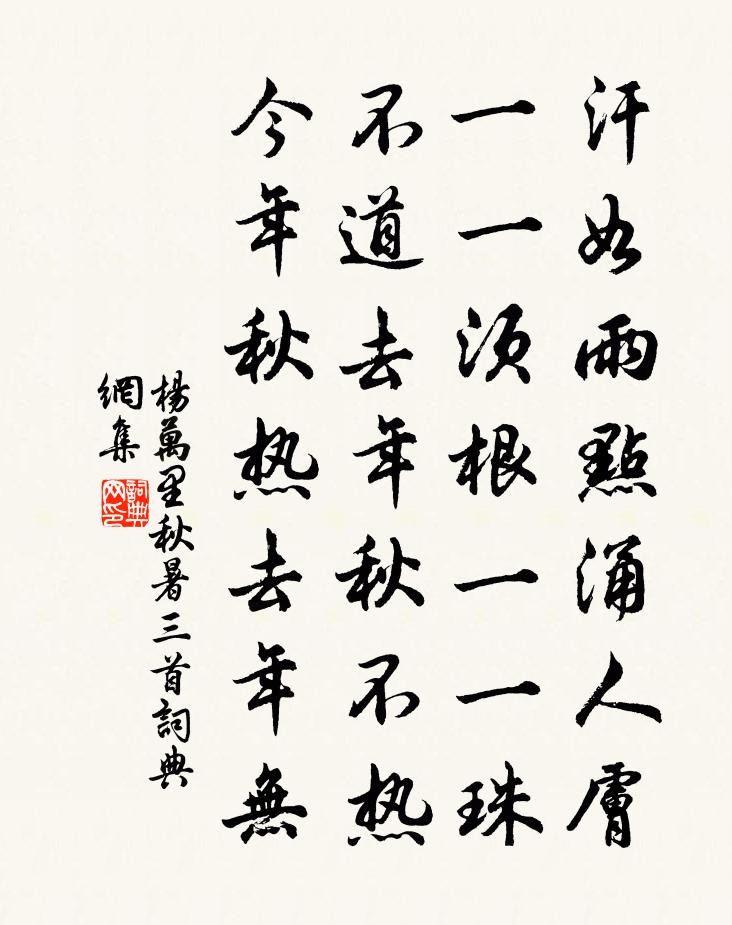 汗如雨點涌人膚
一一須根一一珠
不道去年秋不热
今年秋热去年無
楊萬里秋暑三首詞典
網集
詞典
网印